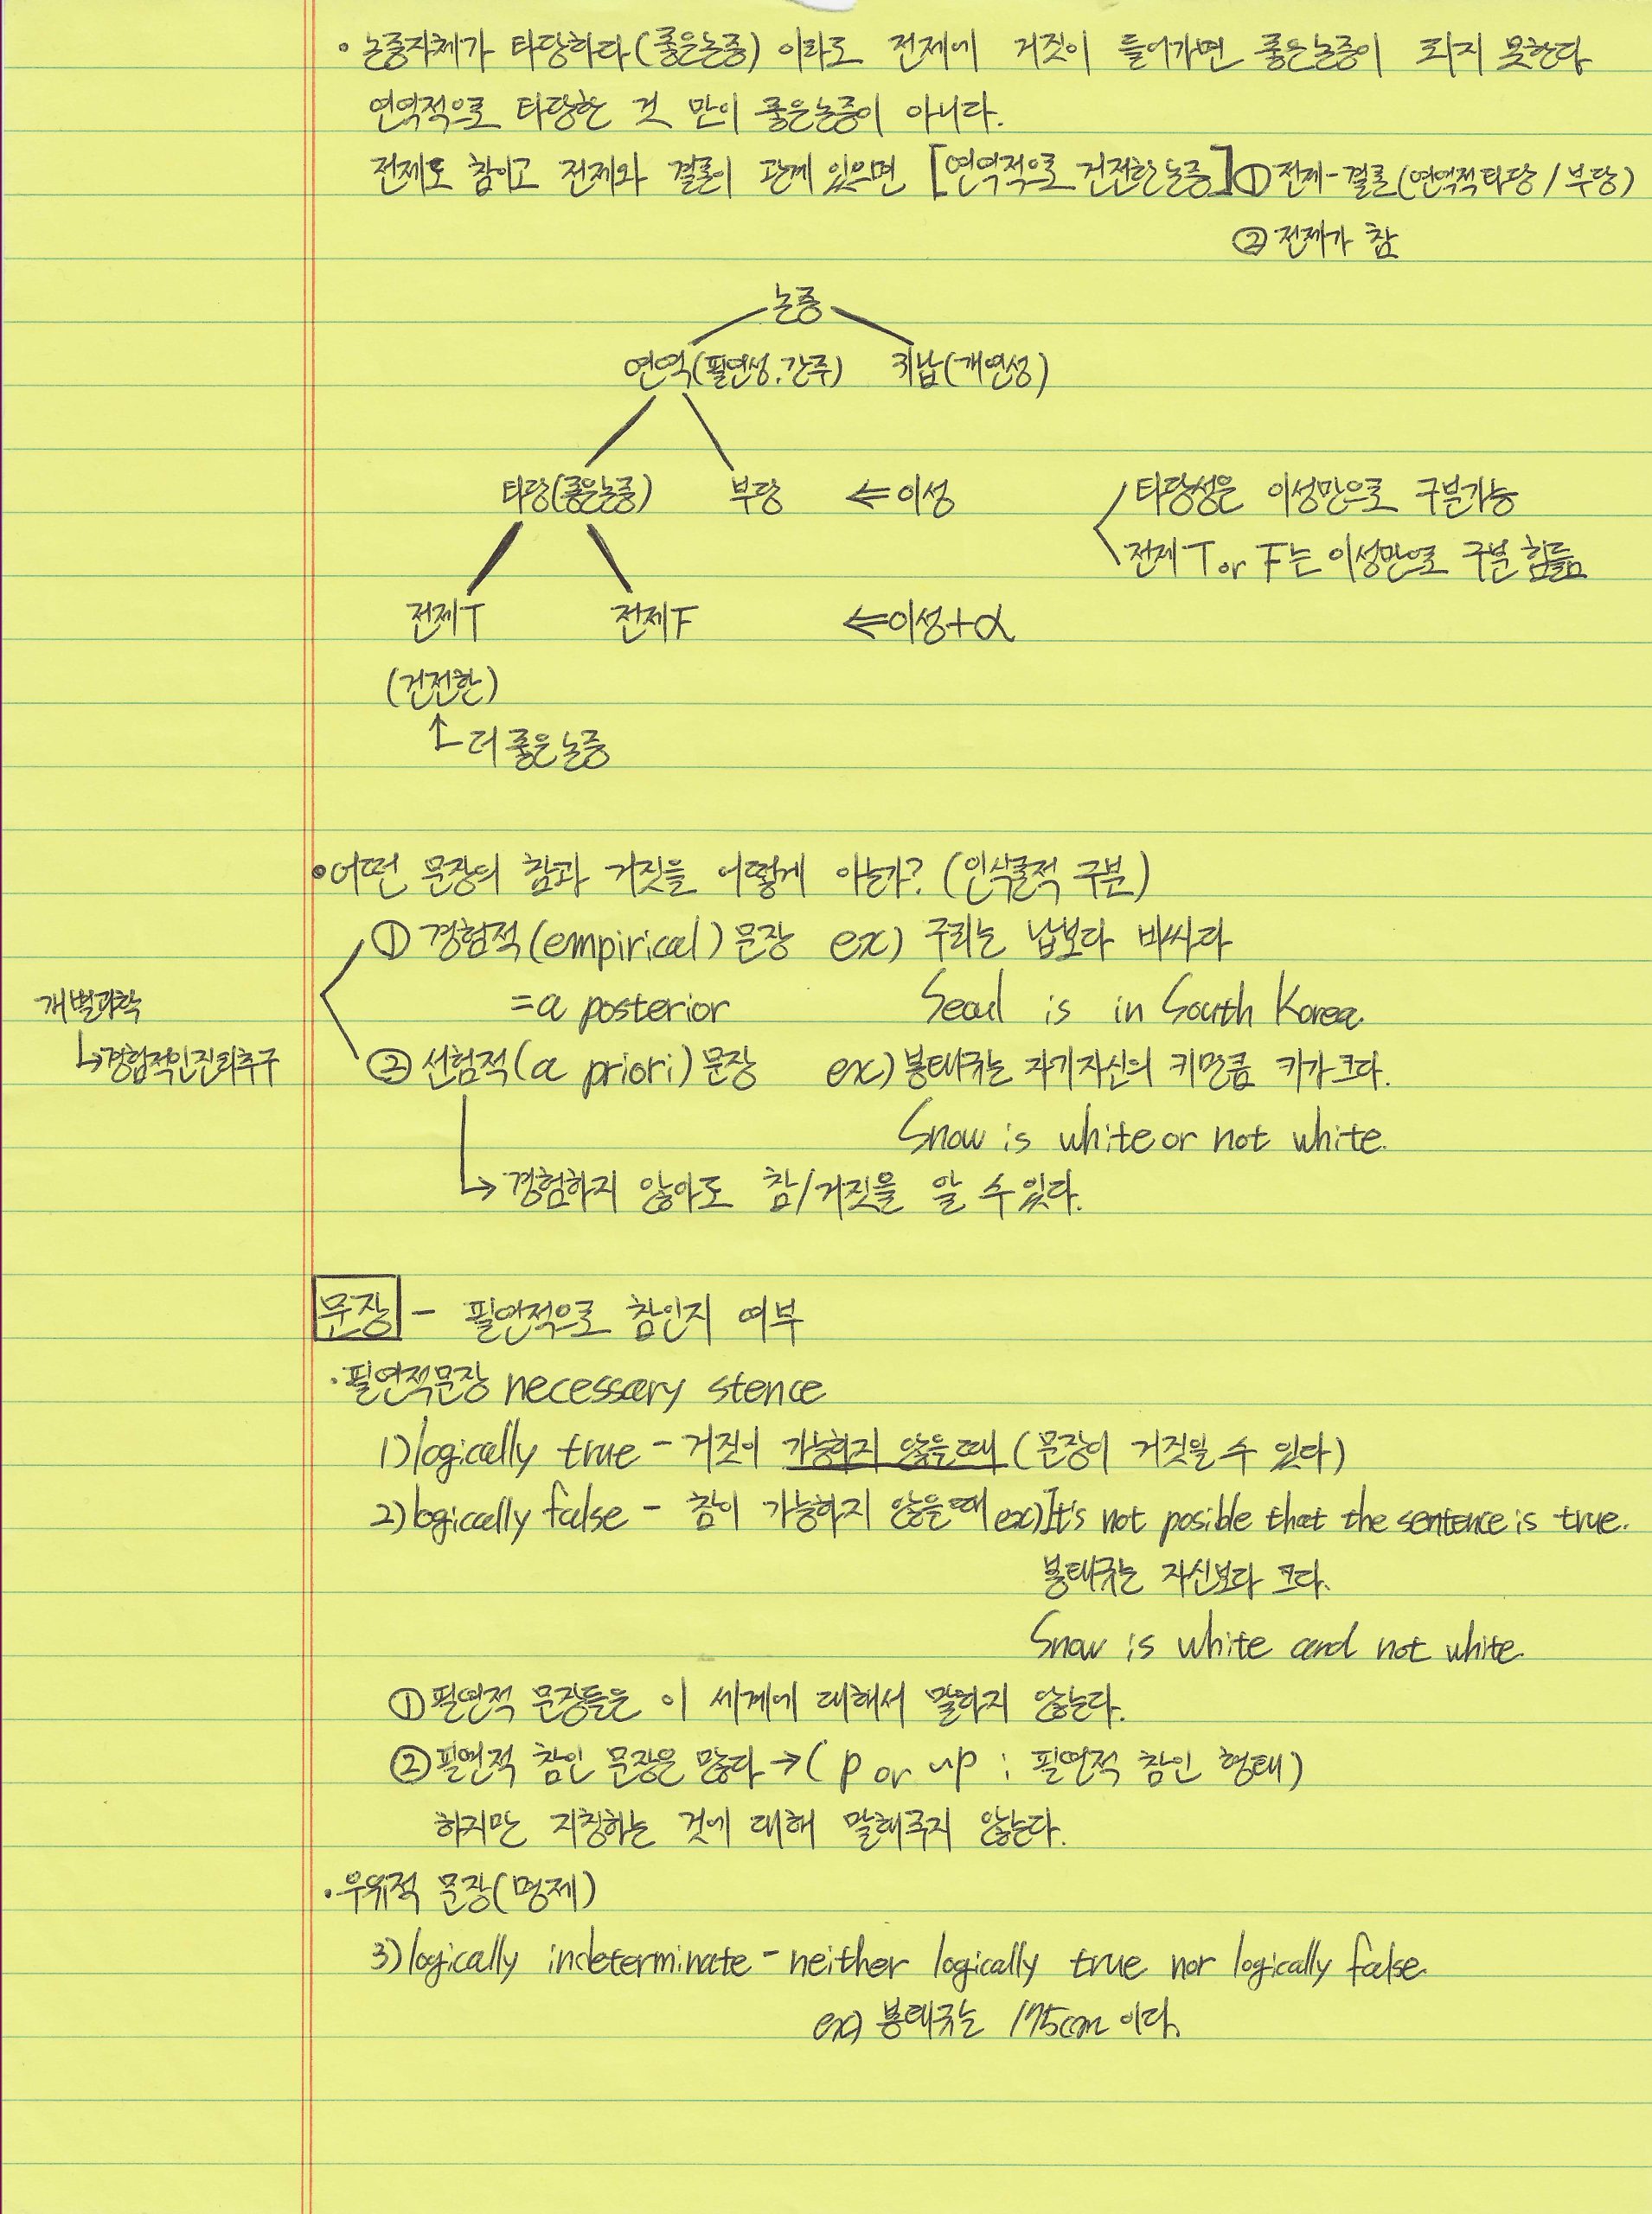 • 논증자체가 타당하다(좋은논증) 이라도 전제에 거짓이 들어가면 좋은논증이 되지 못한다
연역적으로 타당한 것 만이 좋은논증이 아니다.
전제도 참이고 전제와 결론이 관계 있으면 [연역적으로 건전한 논증] ① 전제-결론(연역적타당/부당)
② 전제가 참
논증
연역(필연성.간주) 귀납(개연성)
타당(좋은논증) 부당 ⇐이성 타당성은 이성만으로 구분가능
전제 T or F는 이성만으로 구분 힘듦
전제T 전제F ⇐이성+α
(건전한)
↑더 좋은논증
• 어떤 문장의 참과 거짓을 어떻게 아는가? (인식론적 구분)
① 경험적(empirical) 문장 ex) 구리는 납보다 비싸다
개별과학 =a posterior Seoul is in South Korea.
↳경험적인진리추구 ② 선험적(a priori) 문장 ex) 봉태규는 자기자신의 키만큼 키가 크다.
Snow is white or not white.
↳ 경험하지 않아도 참/거짓을 알 수 있다.
문장 - 필연적으로 참인지 여부
·필연적문장 necessary stence
1) logically true - 거짓이 가능하지 않을때 (문장이 거짓일 수 있다)
2) logically false - 참이 가능하지 않을때 ex) It's not posible that the sentence is true.
봉태규는 자신보다 크다.
Snow is white and not white.
① 필연적 문장들은 이 세계에 대해서 말하지 않는다.
② 필연적 참인 문장은 많다 → (p or ~p : 필연적 참인 형태)
하지만 지칭하는 것에 대해 말해주지 않는다.
·우유적 문장(명제)
3) logically indeterminate - neither logically true nor logically false
ex) 봉태규는 175cm 이다.